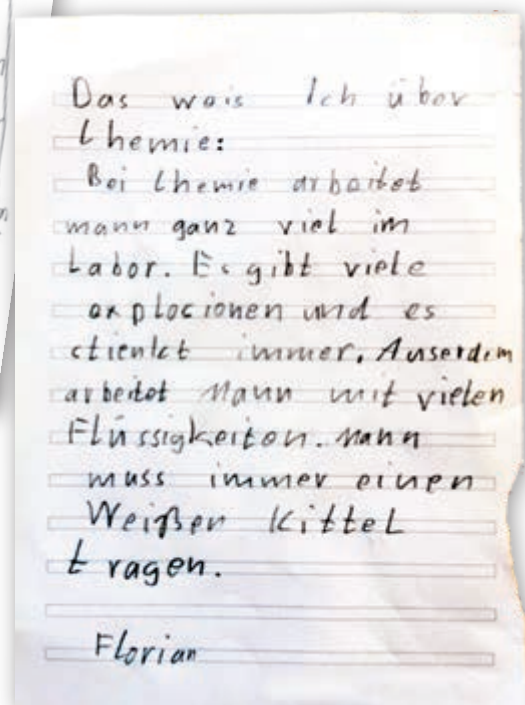 Das wais Ich über
Chemie:
Bei Chemie arbeitet
mann ganz viel im
Labor. Es gibt viele
explocionen und es
stienkt immer. Auserdem
arbeitet Mann mit vielen
Flüssigkeiten. Mann
muss immer einen
Weißer Kittel
tragen.
Florian